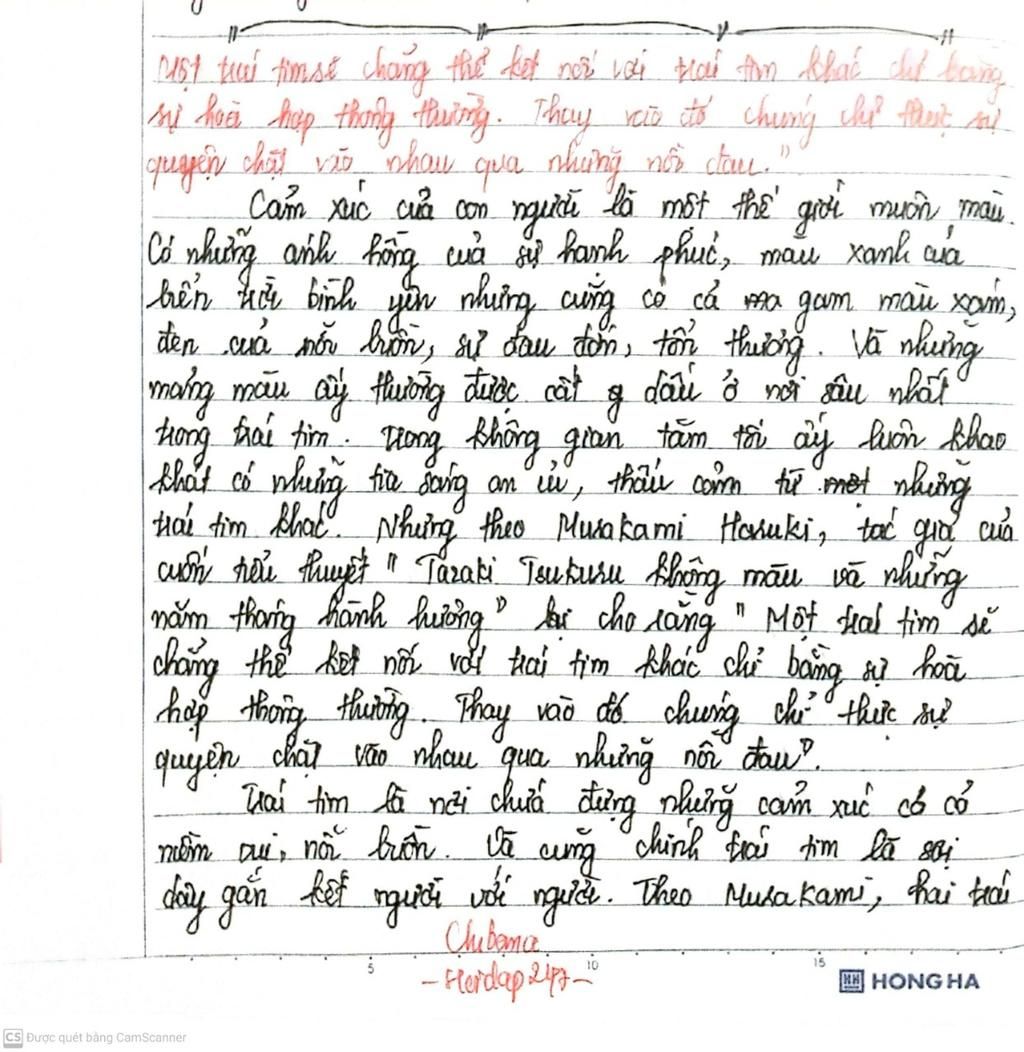 Một trái tim sẽ chẳng thể kết nối với trái tim khác chỉ bằng
sự hoà hợp thông thường. Thay vào đó chúng chỉ thực sự
quyện chặt vào nhau qua những nỗi đau."
Cảm xúc của con người là một thế giới muôn màu.
Có những ánh hồng của sự hạnh phúc, màu xanh của
biển trời bình yên nhưng cũng có cả gam màu xám,
đen của nỗi buồn, sự đau đớn, tổn thương. Và những
mảng màu ấy thường được cất dấu ở nơi sâu nhất
trong trái tim. Trong không gian tăm tối ấy luôn khao
khát có những tia sáng an ủi, thấu cảm từ những
trái tim khác. Nhưng theo Murakami Haruki, tác giả của
cuốn tiểu thuyết "Tazaki Tsukuru không màu và những
năm tháng hành hương" lại cho rằng "Một trái tim sẽ
chẳng thể kết nối với trái tim khác chỉ bằng sự hoà
hợp thông thường. Thay vào đó chúng chỉ thực sự
quyện chặt vào nhau qua những nỗi đau".
Trái tim là nơi chứa đựng những cảm xúc có cả
niềm vui, nỗi buồn. Và cũng chính trái tim là sợi
dây gắn kết người với người. Theo Murakami, hai trái
5 10 15
HH HONG HA
CS Được quét bằng CamScanner